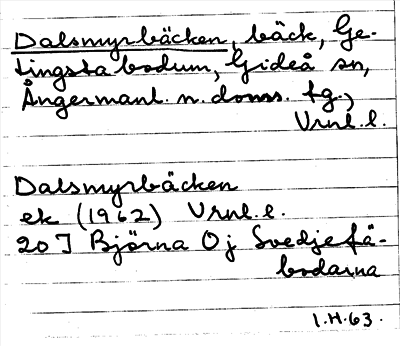 Dalsmyrbäcken, bäck, Ge-
tingsta bodum, Gideå sn,
Ångermanl. n. doms. fg.,
Vrnl. l.
Dalsmyrbäcken
ek (1962) Vrnl. l.
20 J Björna O j Svedjefä-
bodarna
I.H.63.